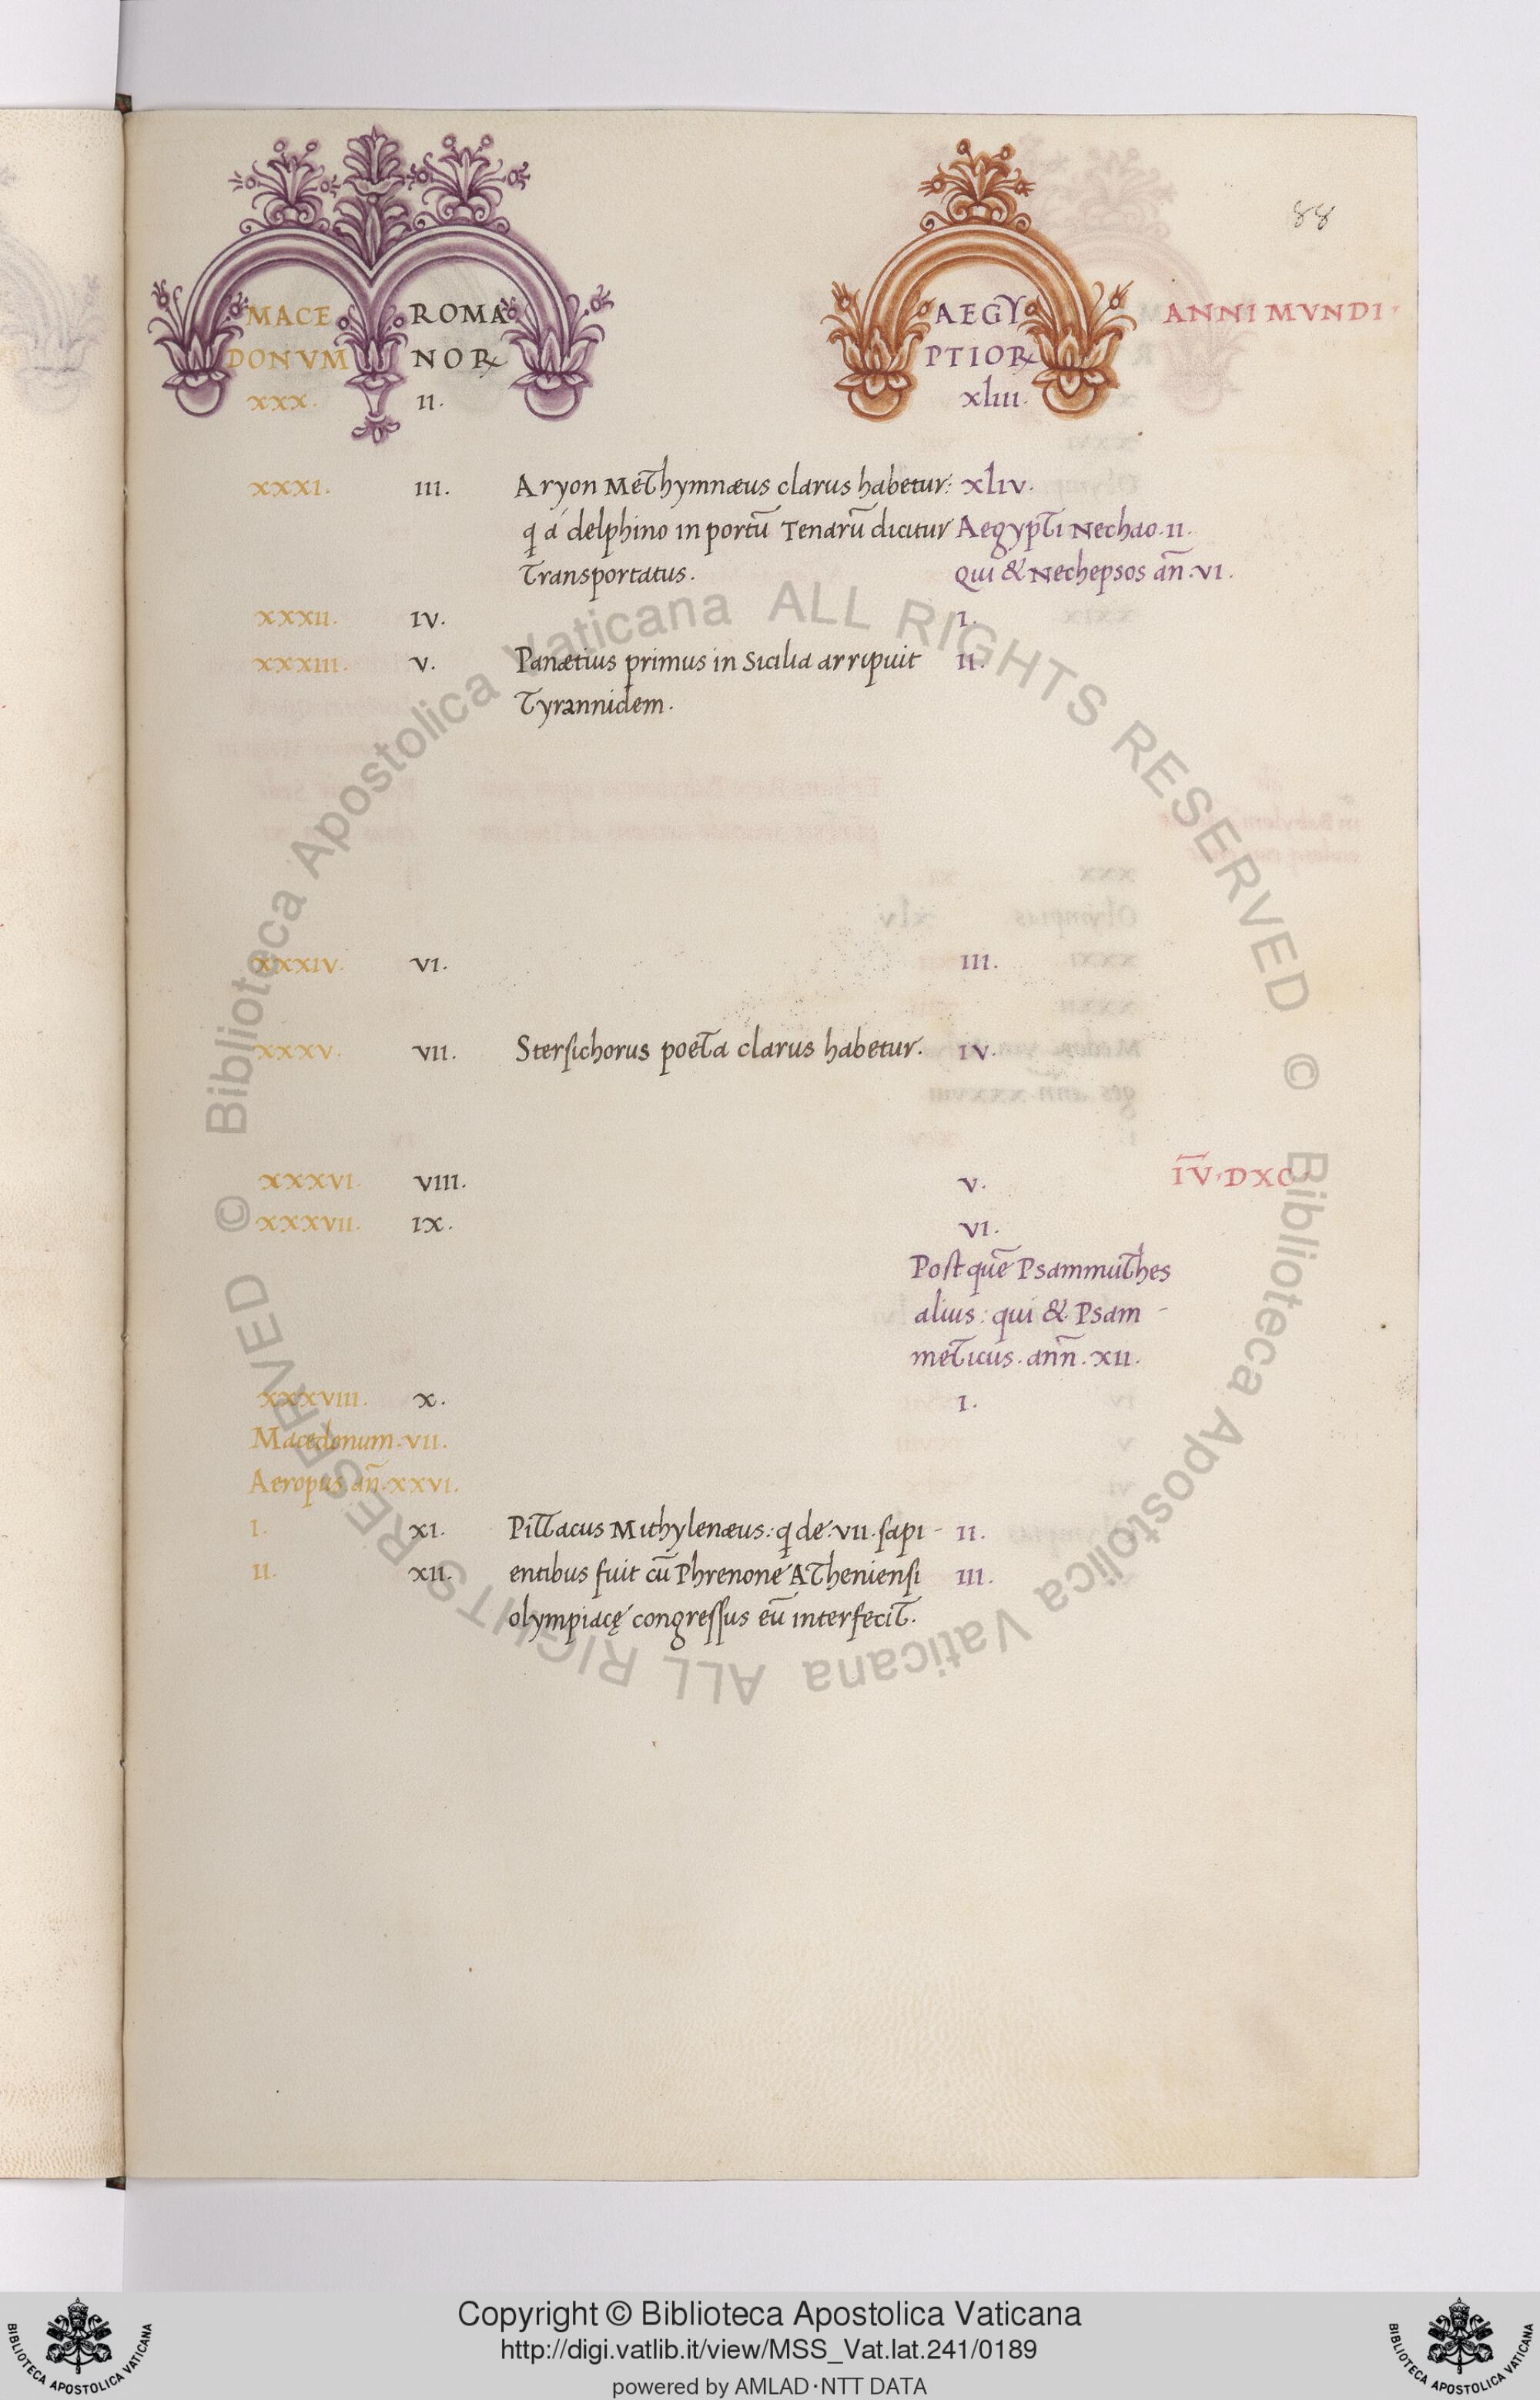 88
MACE ROMA AEGY ANNI MVNDI
DONVM NOR PTIOR
XXX. II. xliii.
XXXI. III. Aryon Methymnæus clarus habetur: xliv.
q a delphino in portū Tenarū dicitur Aegypti Nechao. II.
Transportatus. Qui & Nechepsos an̄. VI.
XXXII. IV. I.
XXXIII. V. Panætius primus in Sicilia arripuit II.
Tyrannidem.
XXXIV. VI. III.
XXXV. VII. Stersichorus poeta clarus habetur. IV.
XXXVI. VIII. V. I̅V̅. DXC.
XXXVII. IX. VI.
Post quē Psammuthes
alius: qui & Psam-
meticus. ann̄. XII.
XXXVIII. X. I.
Macedonum. VII.
Aeropus an̄. XXVI.
I. XI. Pittacus Mithylenæus: q de VII. sapi- II.
II. XII. entibus fuit cū Phrenone Atheniensi III.
olympiacę congressus eū interfecit.
© Biblioteca Apostolica Vaticana ALL RIGHTS RESERVED
© Biblioteca Apostolica Vaticana ALL RIGHTS RESERVED
Copyright © Biblioteca Apostolica Vaticana
http://digi.vatlib.it/view/MSS_Vat.lat.241/0189
powered by AMLAD·NTT DATA
BIBLIOTECA APOSTOLICA VATICANA
BIBLIOTECA APOSTOLICA VATICANA